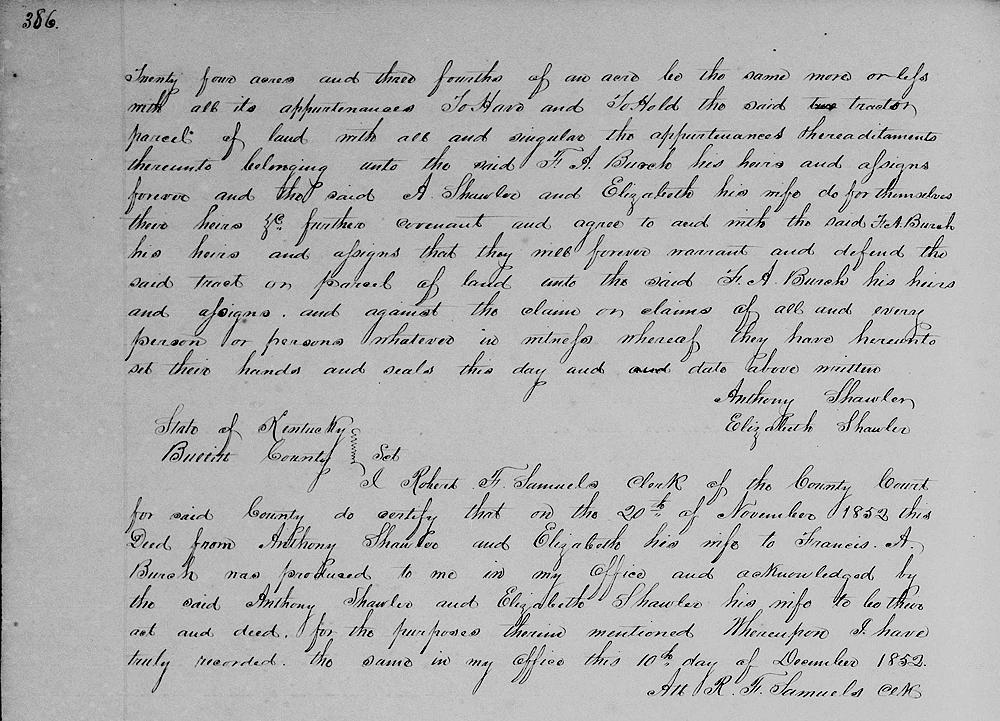 386.
Twenty four acres and three fourths of an acre be the same more or less
with all its appurtenances To Have and To Hold the said tract or
parcel of land with all and singular the appurtenances thereaditaments
thereunto belonging unto the said F. A. Burch his heirs and assigns
forever and the said A Shawler and Elizabeth his wife do for themselves
their heirs &c. further covenant and agree to and with the said F. A. Burch
his heirs and assigns that they will forever warrant and defend the
said tract or parcel of land unto the said F. A. Burch his heirs
and assigns. and against the claim or claims of all and every
person or persons whatever in witness whereof they have hereunto
set their hands and seals this day and and date above written
Anthony Shawler
Elizabeth Shawler
State of Kentucky
Bullitt County } Sct
I Robert F. Samuels Clerk of the County Court
for said County do certify that on the 20th of November 1852 this
Deed from Anthony Shawler and Elizabeth his wife to Francis. A.
Burch was produced to me in my Office and acknowledged by
the said Anthony Shawler and Elizabeth Shawler his wife to be their
act and deed. for the purposes therein mentioned Whereupon I have
truly recorded. the same in my Office this 10th day of December 1852.
Att R. F. Samuels Clk